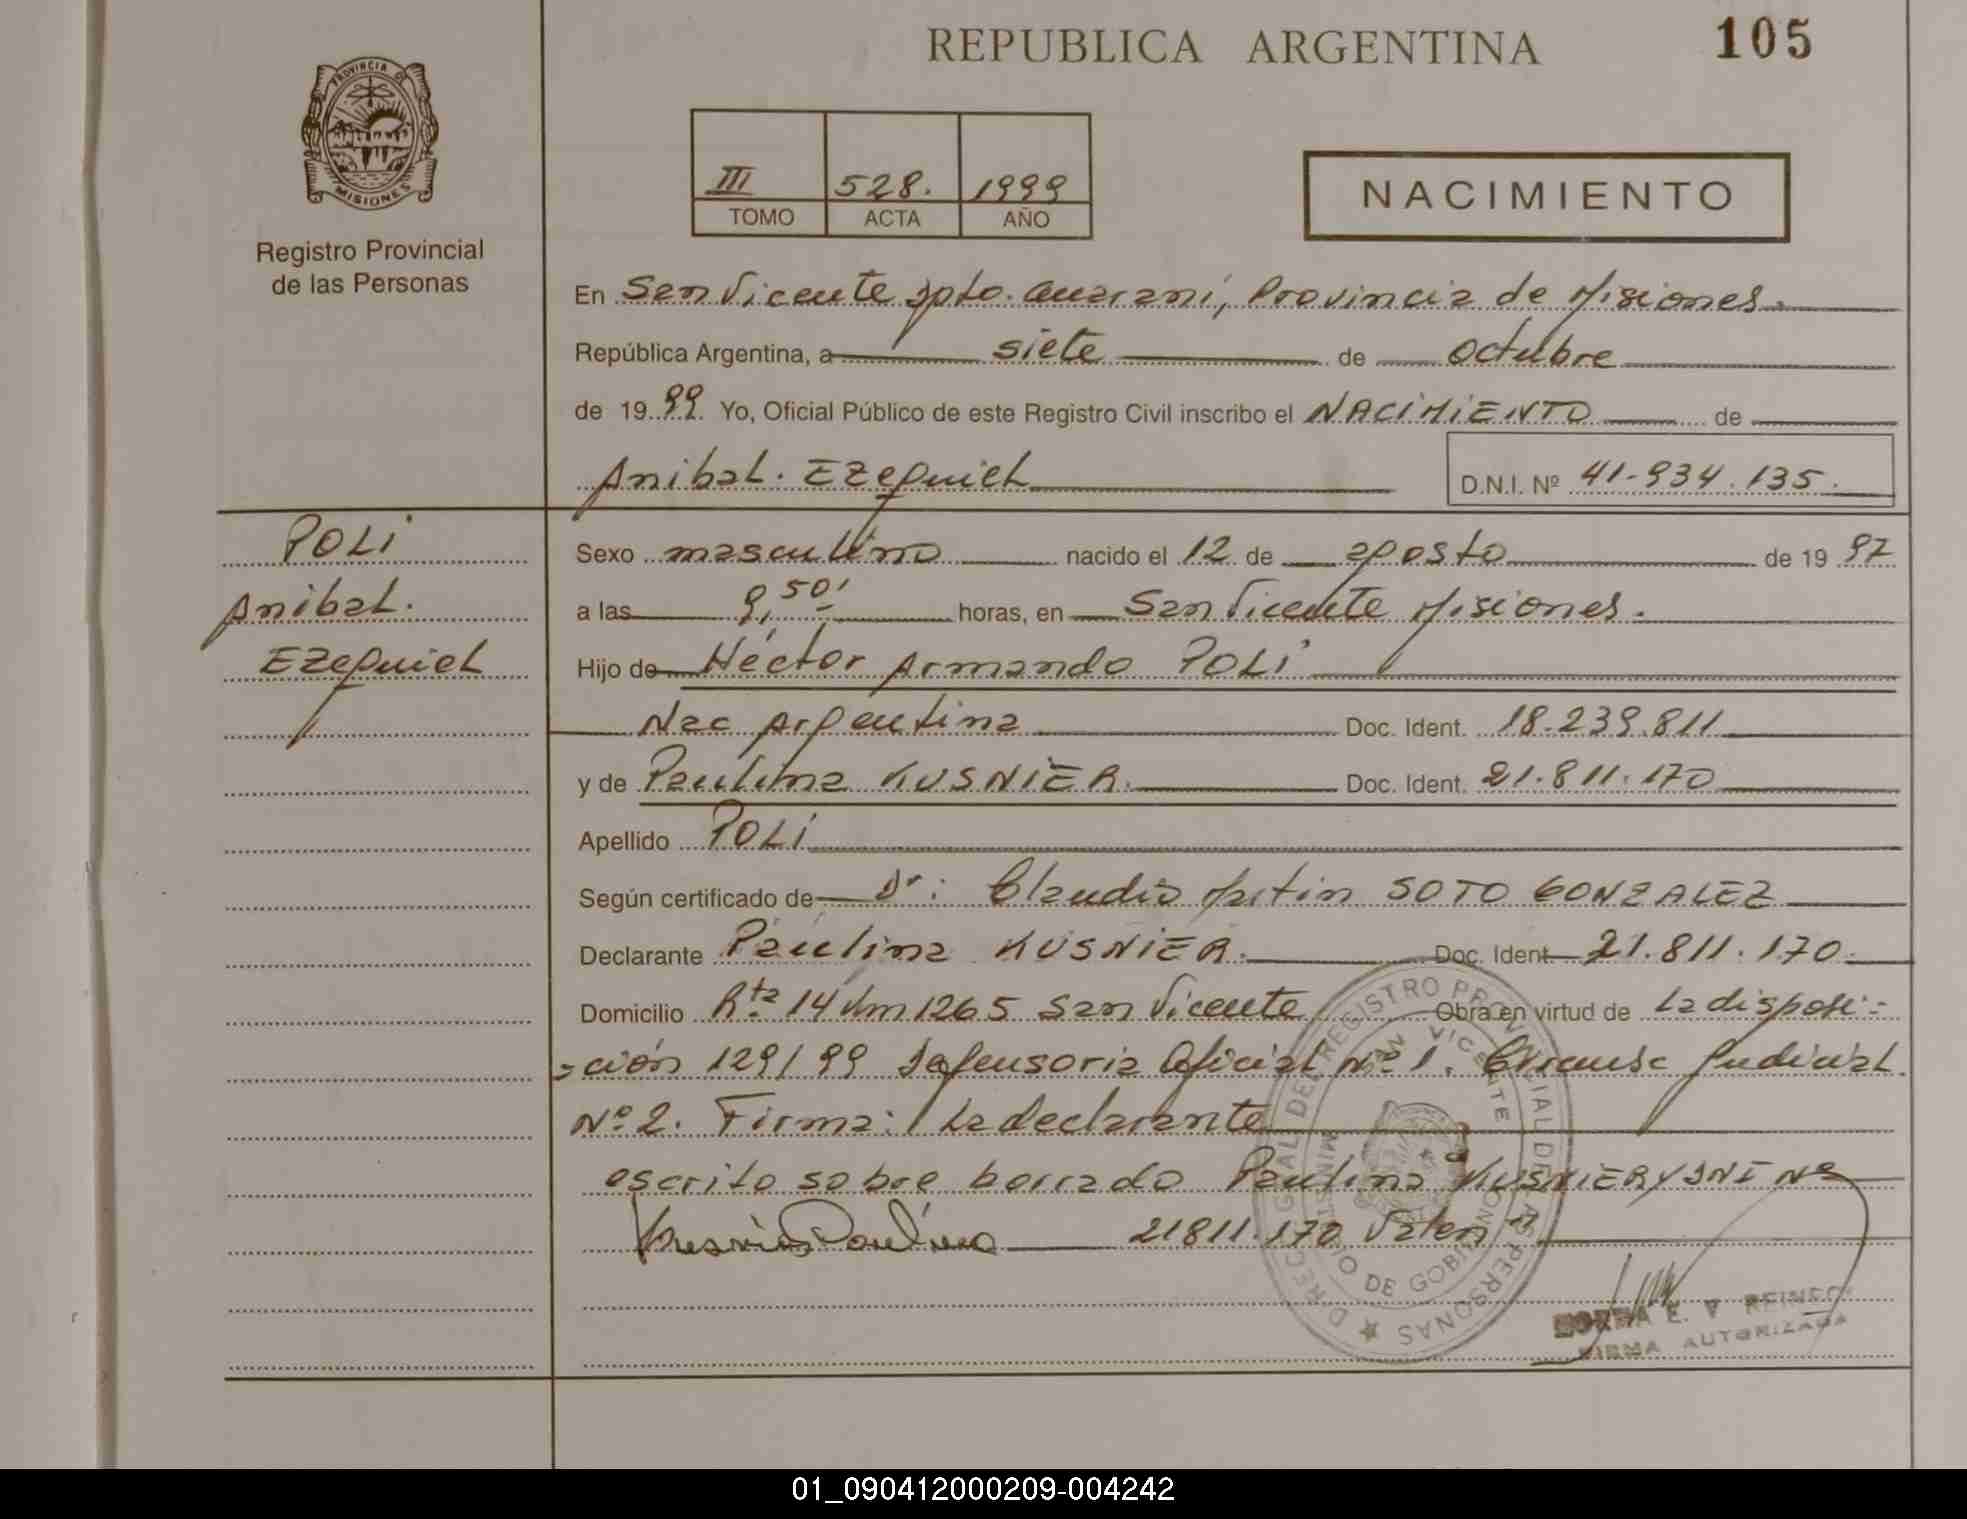 REPUBLICA ARGENTINA
105
PROVINCIA D
MISIONES
Registro Provincial
de las Personas
III 528. 1999
TOMO ACTA AÑO
NACIMIENTO
En San Vicente Dpto. Guarani, Provincia de Misiones.
República Argentina, a siete de octubre
de 1999. Yo, Oficial Público de este Registro Civil inscribo el NACIMIENTO de
Anibal. EZEquiel
D.N.I. Nº 41-934.135.
POLI
Anibal.
EZEquiel
Sexo masculino nacido el 12 de agosto de 1997
a las 9,50' horas, en San Vicente Misiones.
Hijo de Héctor Armando POLI
Nac Argentina Doc. Ident. 18.239.811
y de Paulina KUSNIER. Doc. Ident. 21.811.170
Apellido POLI
Según certificado de Dr: Claudio SOTO GONZALEZ
Declarante Paulina KUSNIER. Doc. Ident. 21.811.170.
Domicilio Rta 14 Km 1265 San Vicente Obra en virtud de La disposi-
-ción 129/99 Defensoria Oficial Nº 1. Circunsc Judicial
Nº 2. Firma: La declarante
escrito sobre borrado Paulina KUSNIER y DNI Nº
21811.170 Valen
Kusnier Paulina
DIREC. GRAL DEL REGISTRO PROVINCIAL DE LAS PERSONAS
SAN VICENTE
MINISTERIO DE GOBIERNO
NORMA E. V REINEC
FIRMA AUTORIZADA
01_090412000209-004242